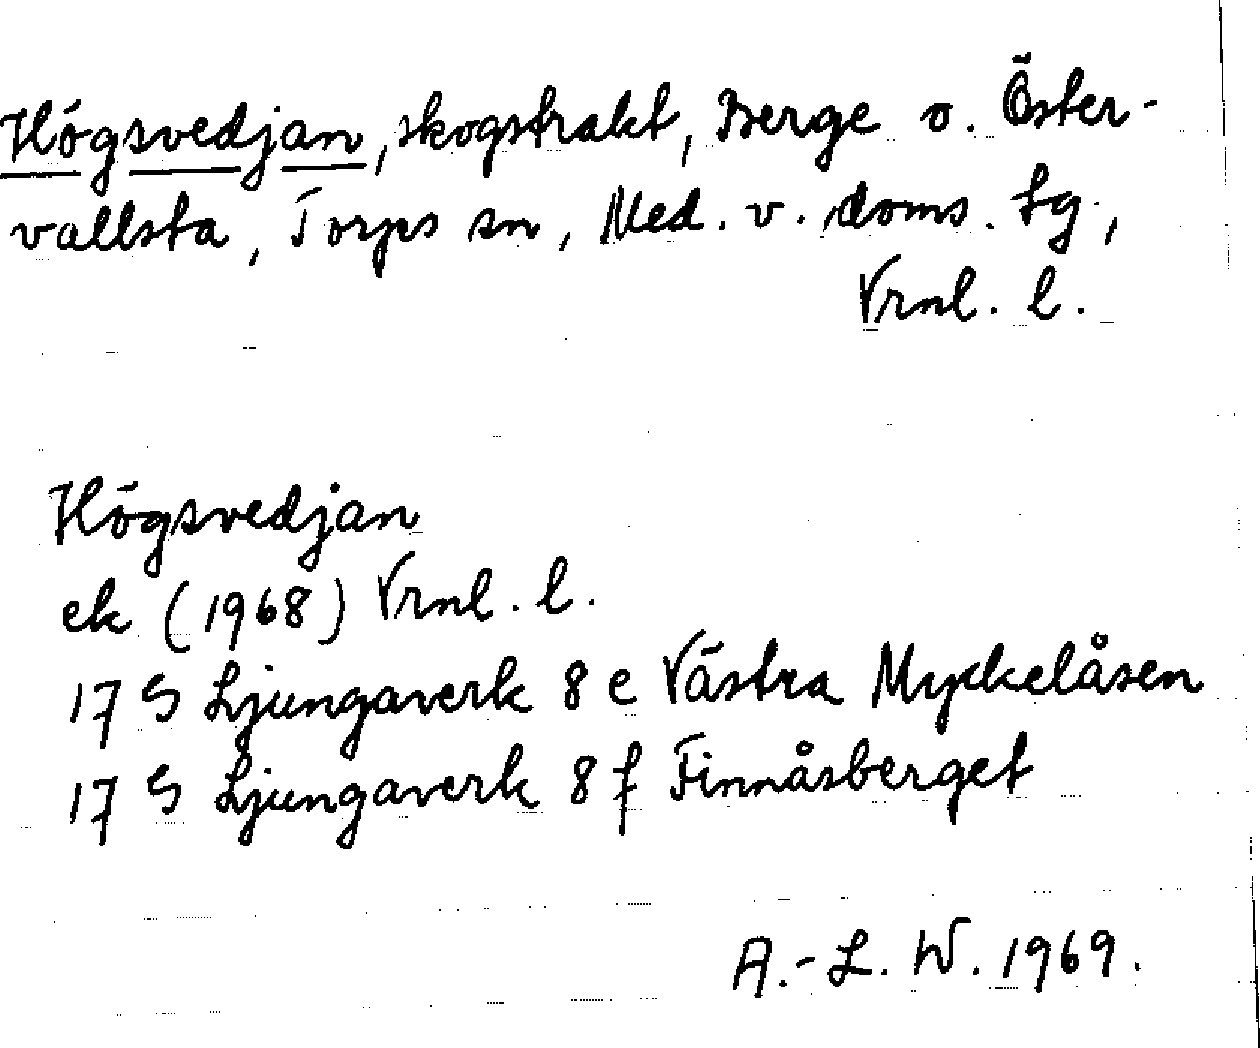 Högsvedjan, skogstrakt, Berge o. Öster-
vallsta, Torps sn, Med. v. doms. tg.,
Vrnl. l.
Högsvedjan
ek (1968) Vrnl. l.
17 G Ljungaverk 8 e Västra Myckelåsen
17 G Ljungaverk 8 f Finnåsberget
A.-L. W. 1969.